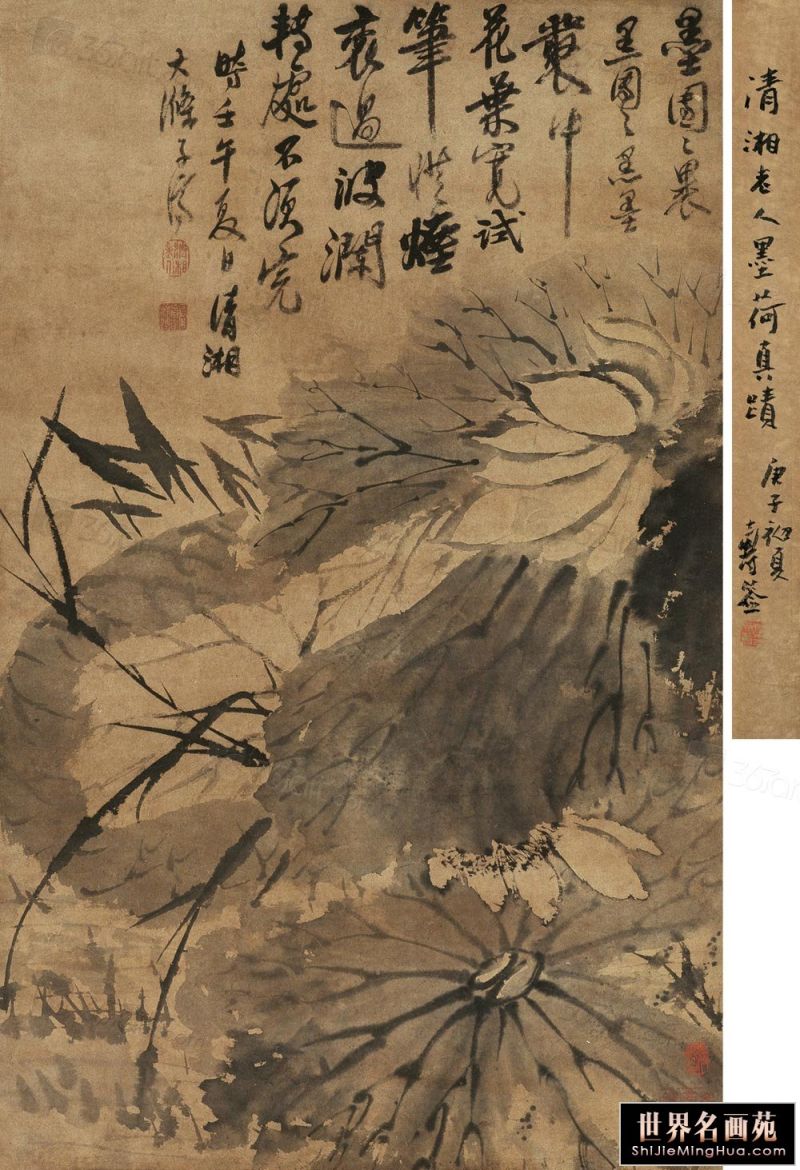 墨團〻裏
黑團〻黑墨
叢中
花葉寬試
筆從煙
裏過波瀾
轉處不須完
時壬午夏日清湘
大滌子濟
清湘老人墨荷真蹟
庚子初夏
世界名画苑
ShiJieMingHua.com